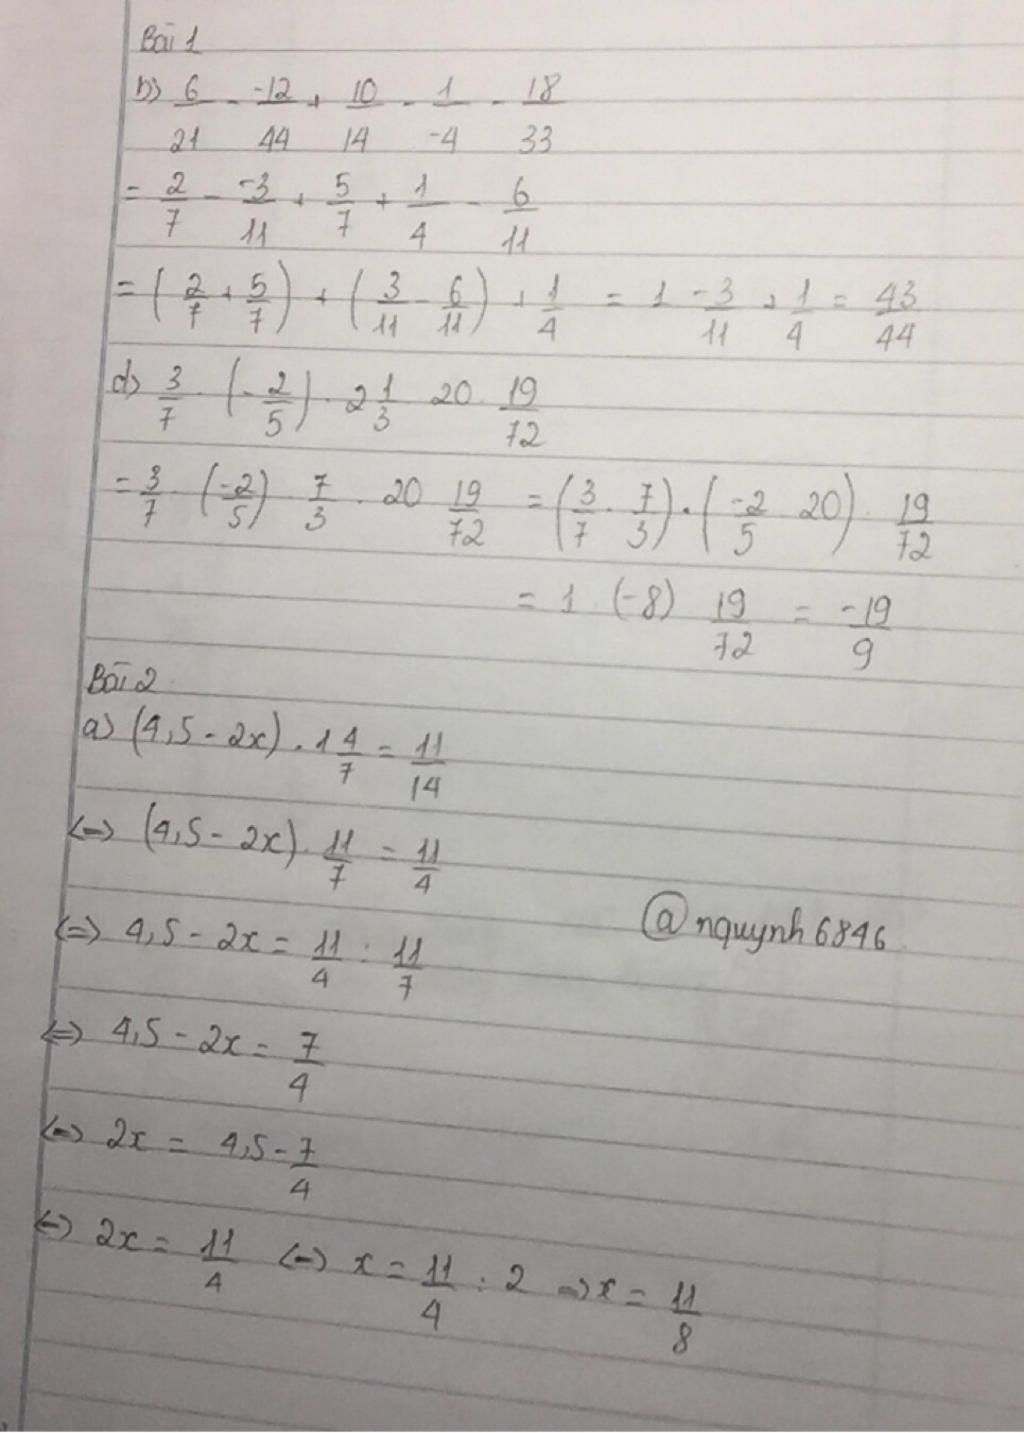 Bài 1
b) 6/21 - -12/44 + 10/14 - 1/-4 - 18/33
= 2/7 - -3/11 + 5/7 + 1/4 - 6/11
= (2/7 + 5/7) + (3/11 - 6/11) + 1/4 = 1 - 3/11 + 1/4 = 43/44
d) 3/7 . (-2/5) . 2 1/3 . 20 . 19/72
= 3/7 . (-2/5) . 7/3 . 20 . 19/72 = (3/7 . 7/3) . (-2/5 . 20) . 19/72
= 1 . (-8) . 19/72 = -19/9
Bài 2
a) (4,5 - 2x) . 1 4/7 = 11/14
<=> (4,5 - 2x) . 11/7 = 11/4
<=> 4,5 - 2x = 11/4 : 11/7
@nquynh6846
<=> 4,5 - 2x = 7/4
<=> 2x = 4,5 - 7/4
<=> 2x = 11/4 <=> x = 11/4 : 2 => x = 11/8